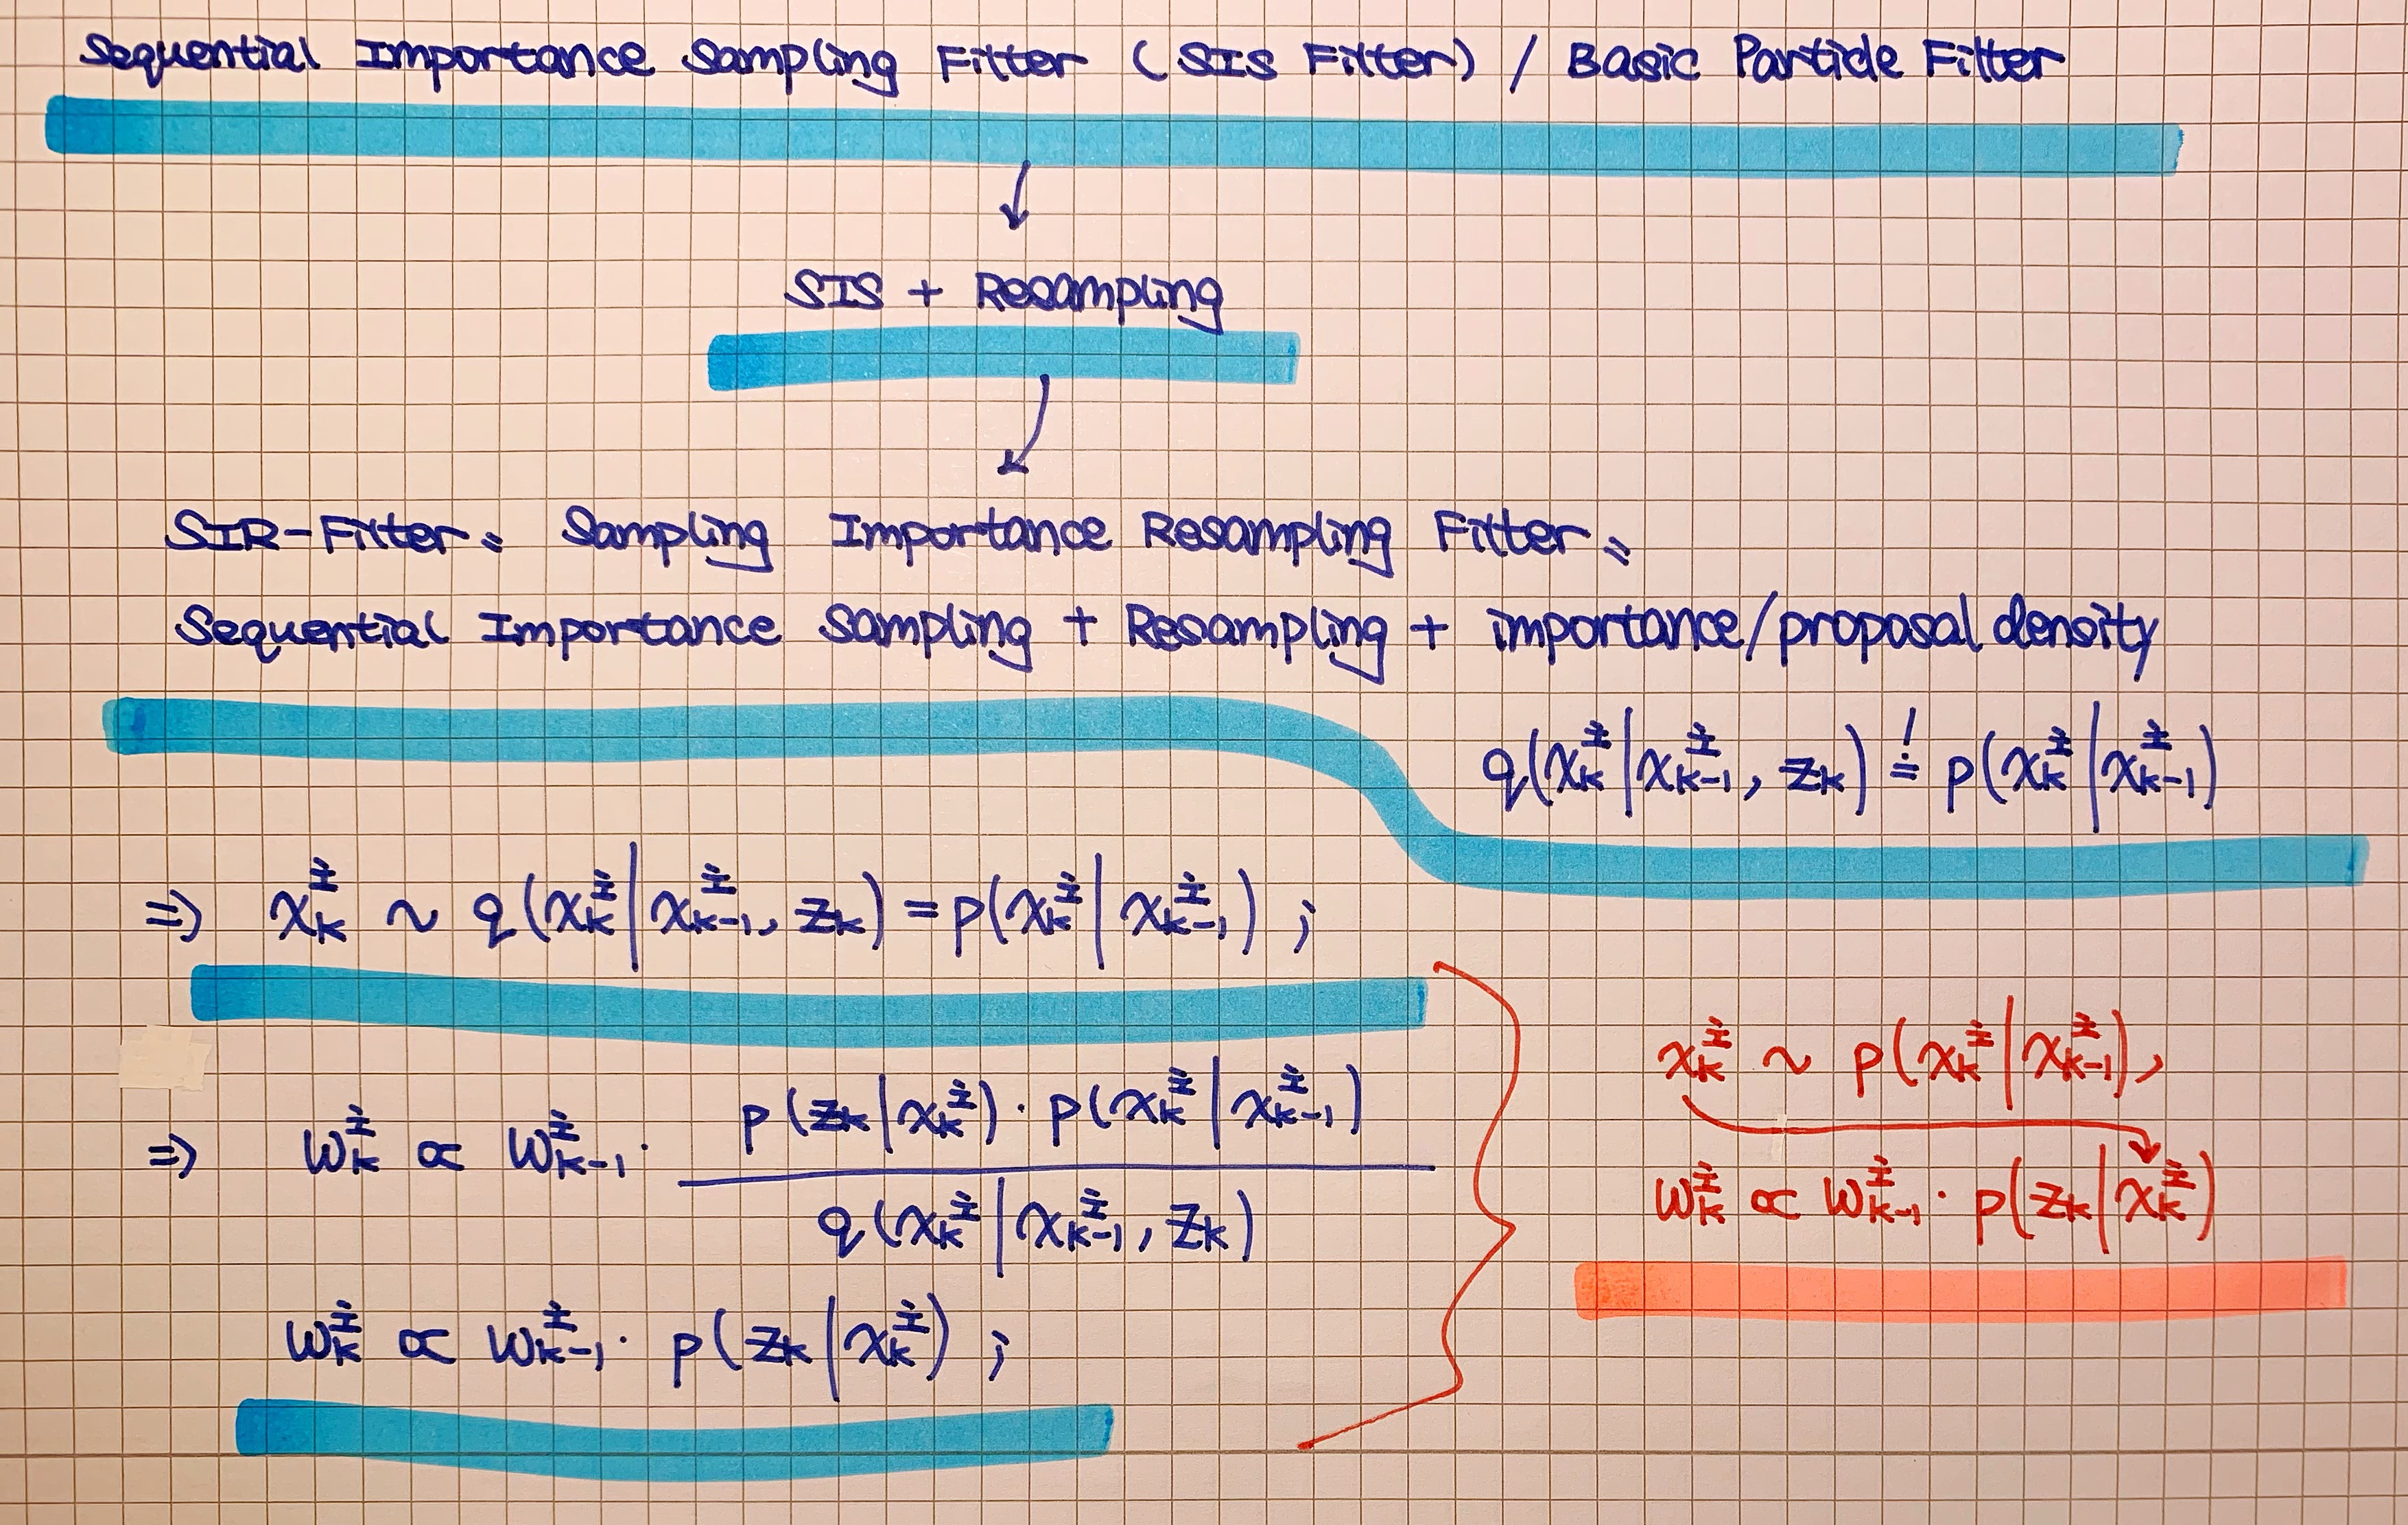 Sequential Importance Sampling Filter (SIS Filter) / Basic Particle Filter
↓
SIS + Resampling
↓
SIR-Filter = Sampling Importance Resampling Filter =
Sequential Importance Sampling + Resampling + importance/proposal density
q(x_k^i | x_{k-1}^i, z_k) =! p(x_k^i | x_{k-1}^i)
⇒ x_k^i ~ q(x_k^i | x_{k-1}^i, z_k) = p(x_k^i | x_{k-1}^i) ;
⇒ w_k^i ∝ w_{k-1}^i · p(z_k | x_k^i) · p(x_k^i | x_{k-1}^i) / q(x_k^i | x_{k-1}^i, z_k)
w_k^i ∝ w_{k-1}^i · p(z_k | x_k^i) ;
x_k^i ~ p(x_k^i | x_{k-1}^i),
w_k^i ∝ w_{k-1}^i · p(z_k | x_k^i)